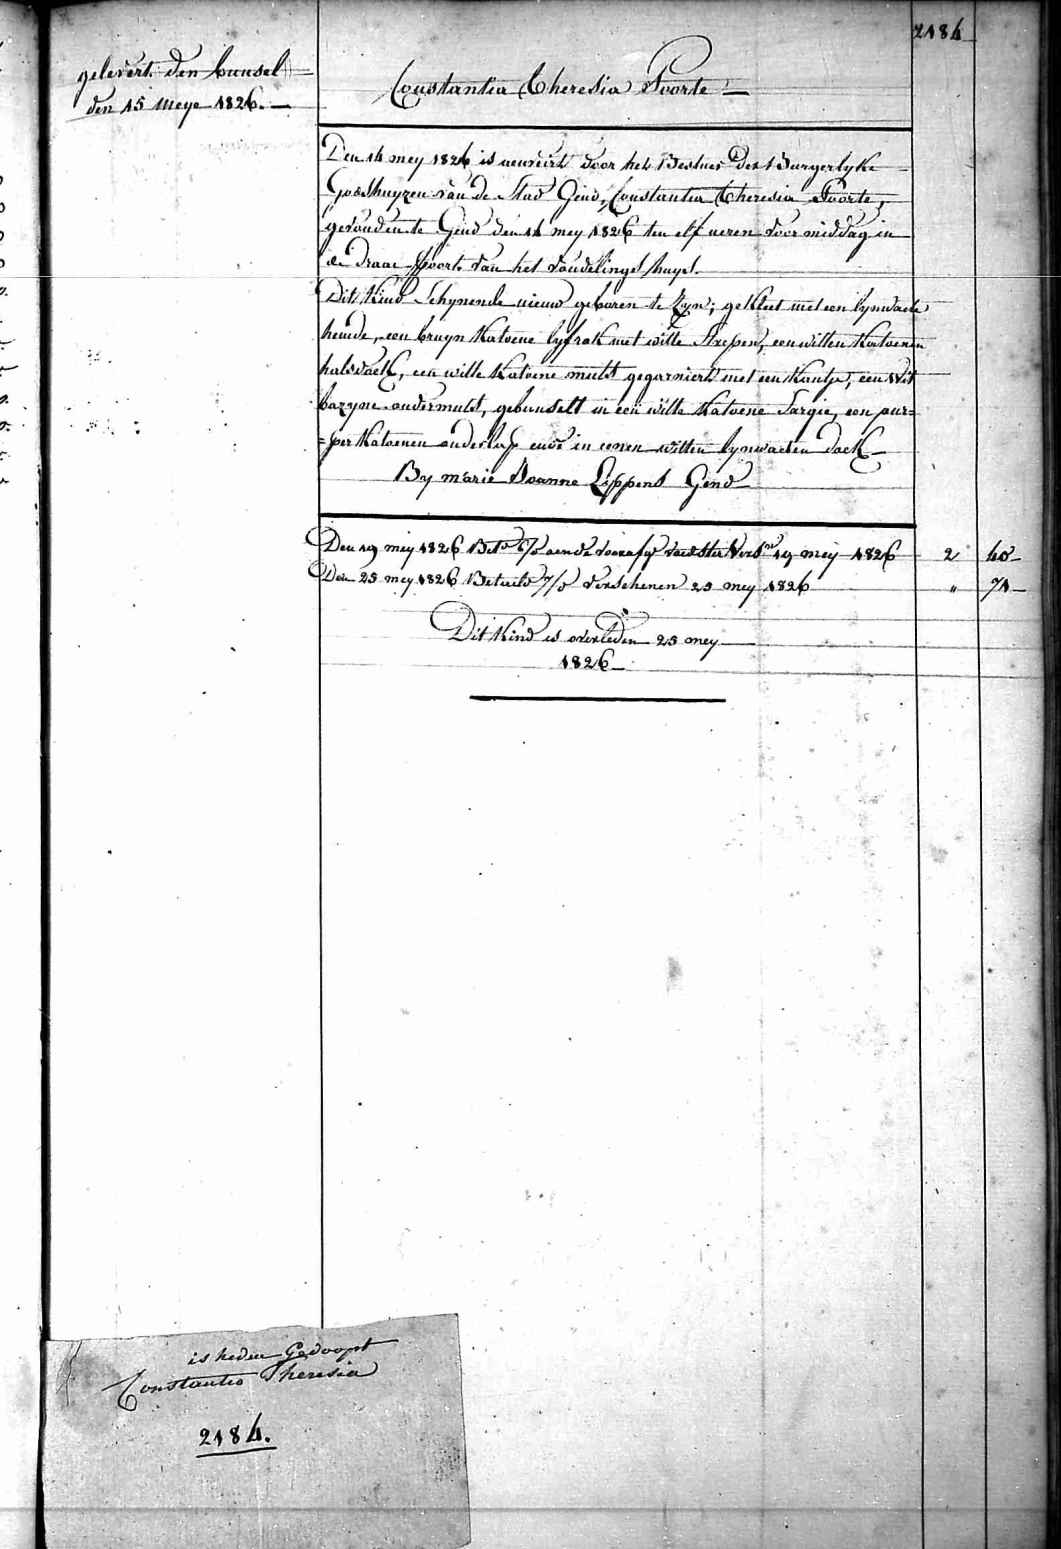 2184
gelevert den bunsel
den 15 meye 1826. —
Constantia Theresia Poorte —
Den 14 mey 1826 is aenveird door het Bestuer der Burgerlyke
Godshuyzen van de Stad Gend, Constantia Theresia Poorte,
gevonden te Gend den 14 mey 1826 ten elf ueren voormiddag in
de draae poort van het vondelingshuys.
Dit Kind Schynende nieuw geboren te Zyn; gekleet met een lynwaete
hemde, een bruyn Katoene lyfrok met witte Strepen, een witten Katoenen
halsdoeck, een witte Katoene muts gegarniert met een Kantje, een wit
bazyne ondermuts, gebunselt in een witte Katoene Sargie, een pur=
=per Katoenen onderlap ende in eenen witten lynwaeten doeck —
By marie Joanne Lippens Gend
Den 19 mey 1826 Bet^d aende voedster 19 mey 1826 2 40 —
Den 25 mey 1826 Betaeld verschenen 25 mey 1826 " 71 —
Dit Kind is overleden 25 mey
1826 —
is heden Gedoopt
Constantia Theresia
2184.